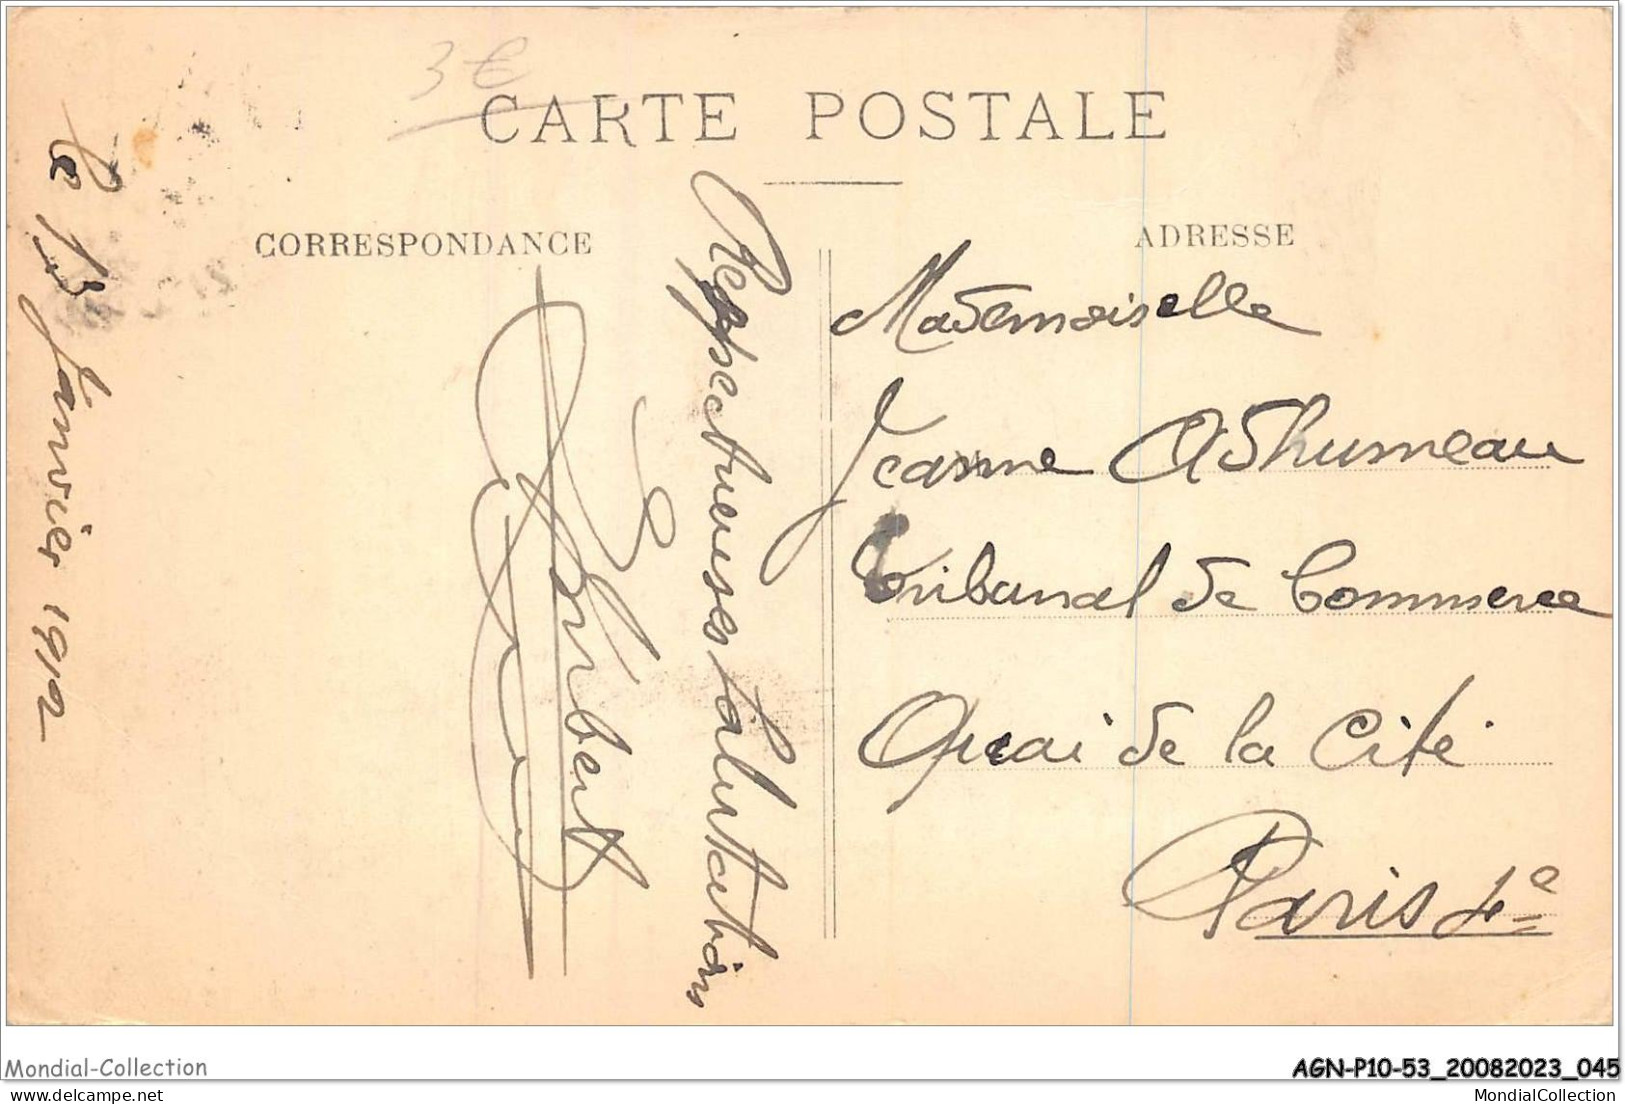 3 €
CARTE POSTALE
CORRESPONDANCE
ADRESSE
le 13 Janvier 1912
Respectueuses salutations
Mademoiselle
Jeanne Adhumeau
Tribunal de Commerce
Quai de la Cité
Paris 4e
Mondial-Collection
AGN-P10-53_20082023_045
delcampe.net
MondialCollection